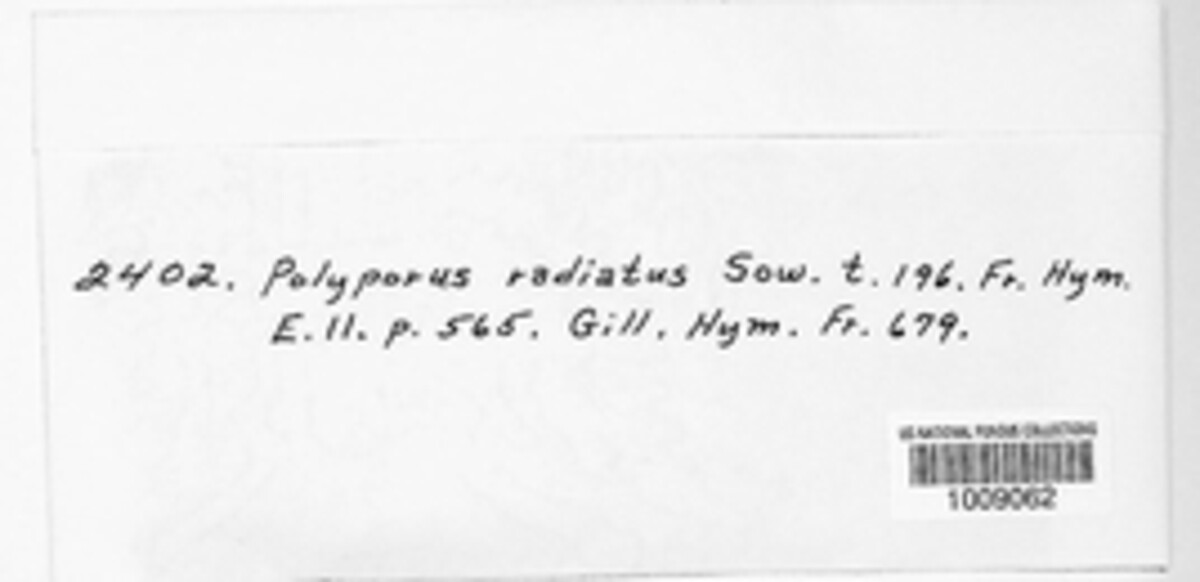 2402. Polyporus radiatus Sow. t. 196. Fr. Hym.
E. 11. p. 565. Gill. Hym. Fr. 679.
US NATIONAL FUNGUS COLLECTIONS
1009062